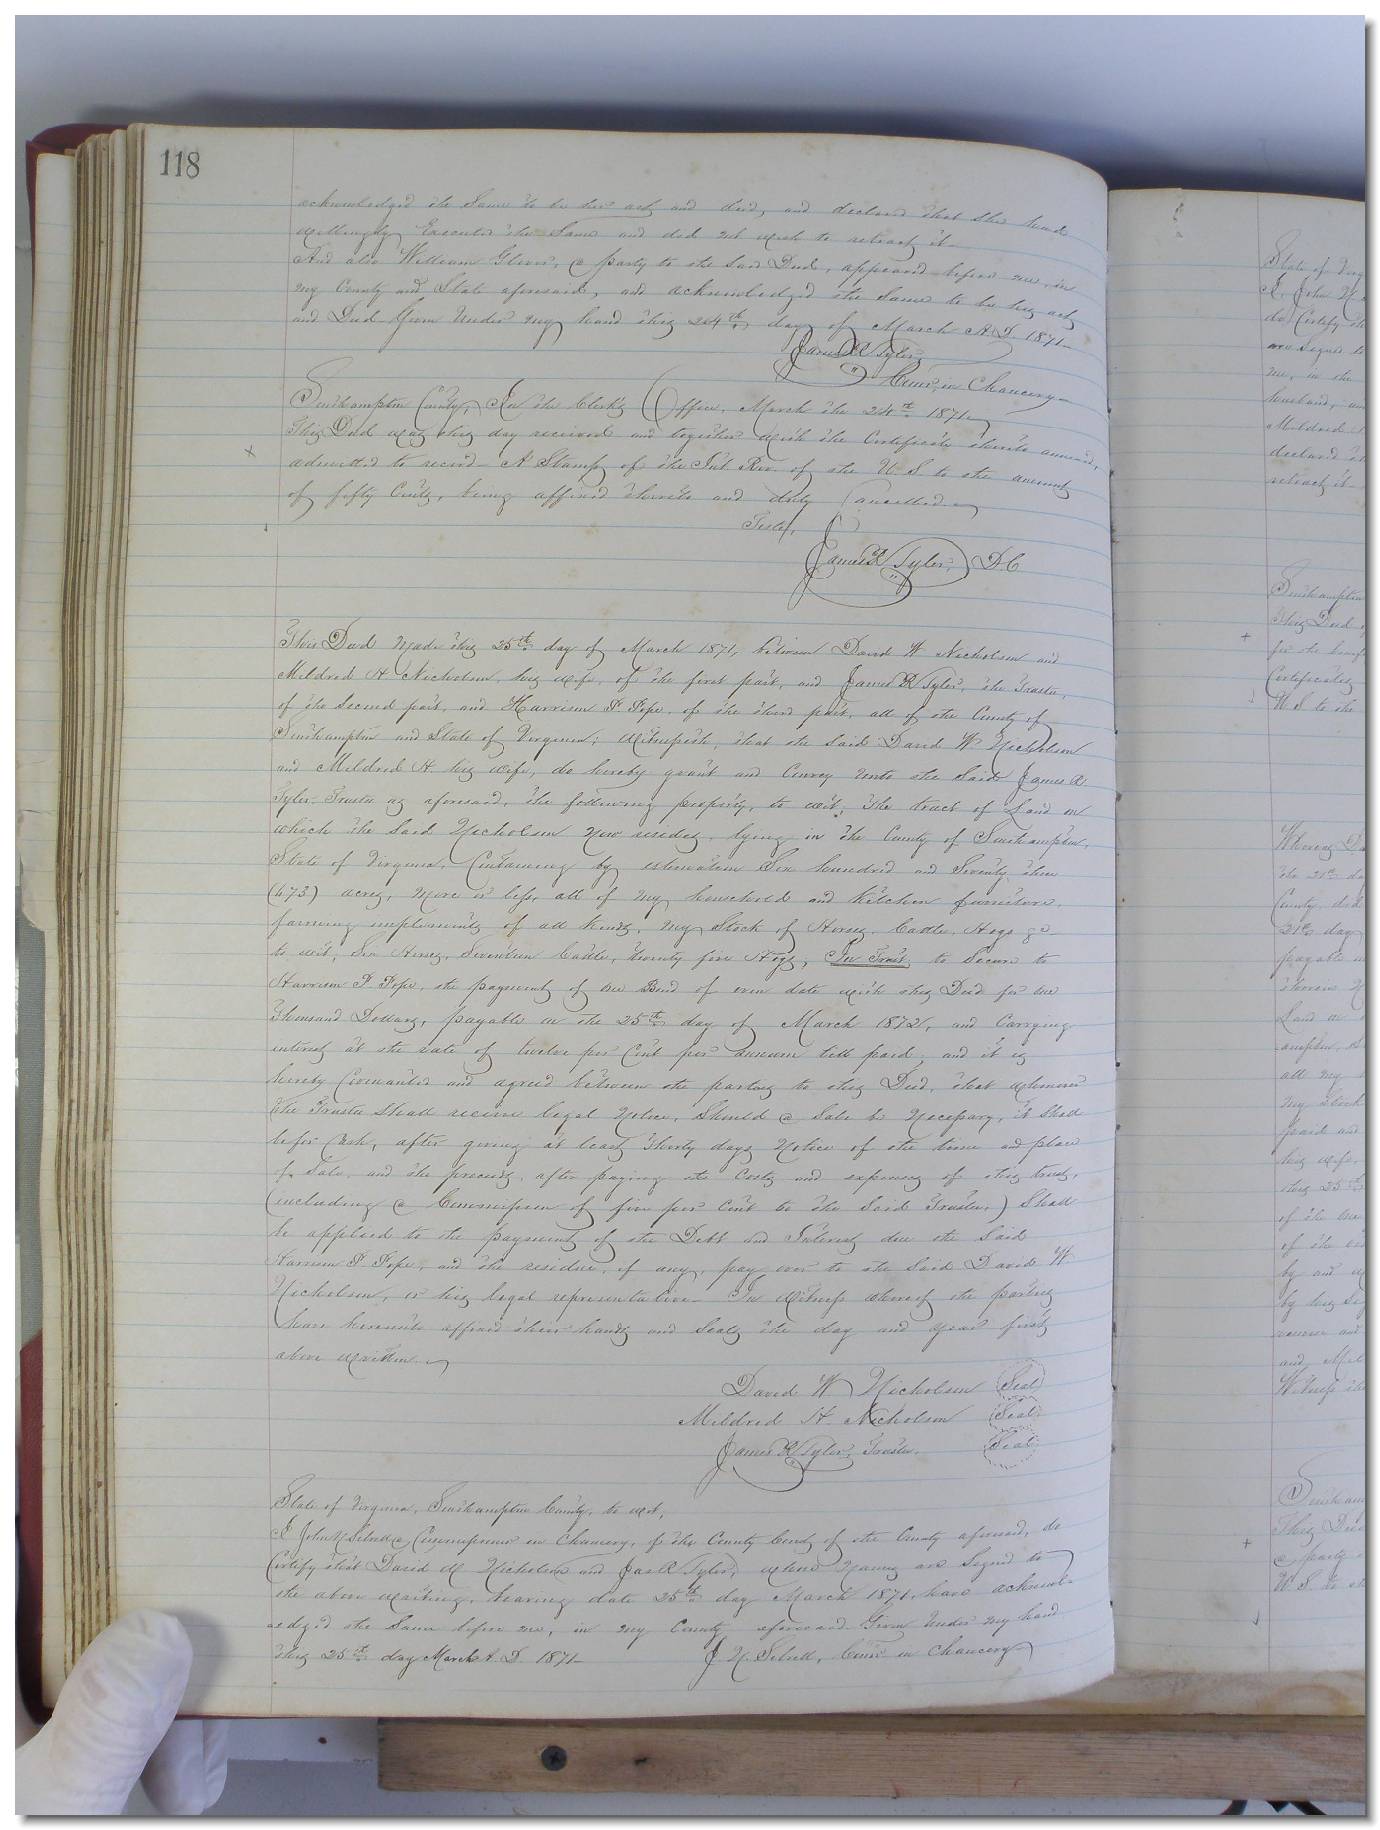 118
acknowledged the Same to be her act and deed, and declared that she had
willingly Executed the Same and did not wish to retract it-
And also William Glover, a party to the said Deed, appeared before me, in
my County and State aforesaid, and acknowledged the same to be his act
and Deed- Given Under my hand this 24th day of March A.D. 1871-
James R Tyler,
Comr, in Chancery-
Southampton County, In the Clerk's Office, March the 24th 1871
This Deed was this day received and together with the Certificate thereto annexed,
admitted to record- A Stamp of the Int Rev. of the U S to the amount
of fifty Cents, being affixed thereto and duly Cancelled-
Teste,
James R Tyler, D.C
This Deed Made this 25th day of March 1871, between David W Nicholson and
Mildred H Nicholson, his wife, of the first part, and James R Tyler, the Trustee,
of the second part, and Harrison P. Pope, of the third part, all of the County of
Southampton and State of Virginia; Witnesseth, that the said David W Nicholson
and Mildred H his wife, do hereby grant and Convey unto the Said James R.
Tyler- Trustee as aforesaid, the following property, to wit; The tract of Land on
which the Said Nicholson Now resides, lying in the County of Southampton,
State of Virginia, Containing by estimation Six hundred and Seventy three
(673) acres, more or less, all of my household and Kitchen furniture,
farming implements of all kinds, my Stock of Horses, Cattle, Hogs &c-
to wit; Six Horses, Seventeen Cattle, twenty five Hogs, In Trust, to Secure to
Harrison P. Pope, the payment of one Bond of even date with this Deed for one
Thousand Dollars, payable on the 25th day of March 1872, and Carrying
interest at the rate of twelve per Cent per annum till paid; and it is
hereby Covenanted and agreed between the parties to this Deed, that whenever
the Trustee Shall receive legal Notice, Should a Sale be Necessary, it shall
be for Cash, after giving at least Thirty days Notice of the time and place
of Sale, and the proceeds, after paying the Costs and expenses of this trust,
(including a Commission of five per Cent to the Said Trustee,) Shall
be applied to the payment of the Debt and Interest due the Said
Harrison P. Pope, and the residue, if any, pay over to the Said David W.
Nicholson, or his legal representative- In Witness whereof the parties
have hereunto affixed their hands and Seals the day and year first
above written-
David W Nicholson Seal
Mildred H. Nicholson Seal
James R Tyler, Trustee. Seal
State of Virginia, Southampton County, to wit,
I John N Commissioner in Chancery, of the County Court of the County aforesaid, do
Certify that David W Nicholson and Jas R Tyler, whose Names are Signed to
the above writing, bearing date 25th day March 1871, have acknowl-
edged the Same before me, in my County aforesaid Given Under my hand
this 25th day March A. D. 1871- J. N. Comr in Chancery